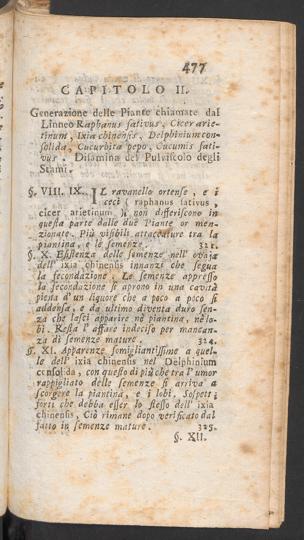 477
CAPITOLO II.
Generazione delle Piante chiamate dal
Linneo Raphanus sativus, Cicer arie-
tinum, Ixia chinensis, Delphinium con-
solida, Cucurbita pepo, Cucumis sati-
vus. Disamina del Pulviscolo degli
Stami.
§. VIII. IX. IL ravanello ortense, e i
ceci (raphanus sativus,
cicer arietinum) non differiscono in
questa parte dalle due Piante or men-
zionate. Più visibili attaccature tra la
piantina, e le semenze. 321.
§. X. Esistenza delle semenze nell'ovaja
dell'ixia chinensis innanzi che segua
la fecondazione. Le semenze appresso
la fecondazione si aprono in una cavità
piena d'un liquore che a poco a poco si
addensa, e da ultimo diventa duro sen-
za che lasci apparire nè piantina, nè lo-
bi. Resta l'affare indeciso per mancan-
za di semenze mature. 324.
§. XI. Apparenze somigliantissime a quel-
le dell'ixia chinensis nel Delphinium
consolida, con questo di più che tra l'umor
rappigliato delle semenze si arriva a
scorgere la piantina, e i lobi. Sospetti
forti che debba esser lo stesso dell'ixia
chinensis. Ciò rimane dopo verificato dal
fatto in semenze mature. 325.
§. XII.